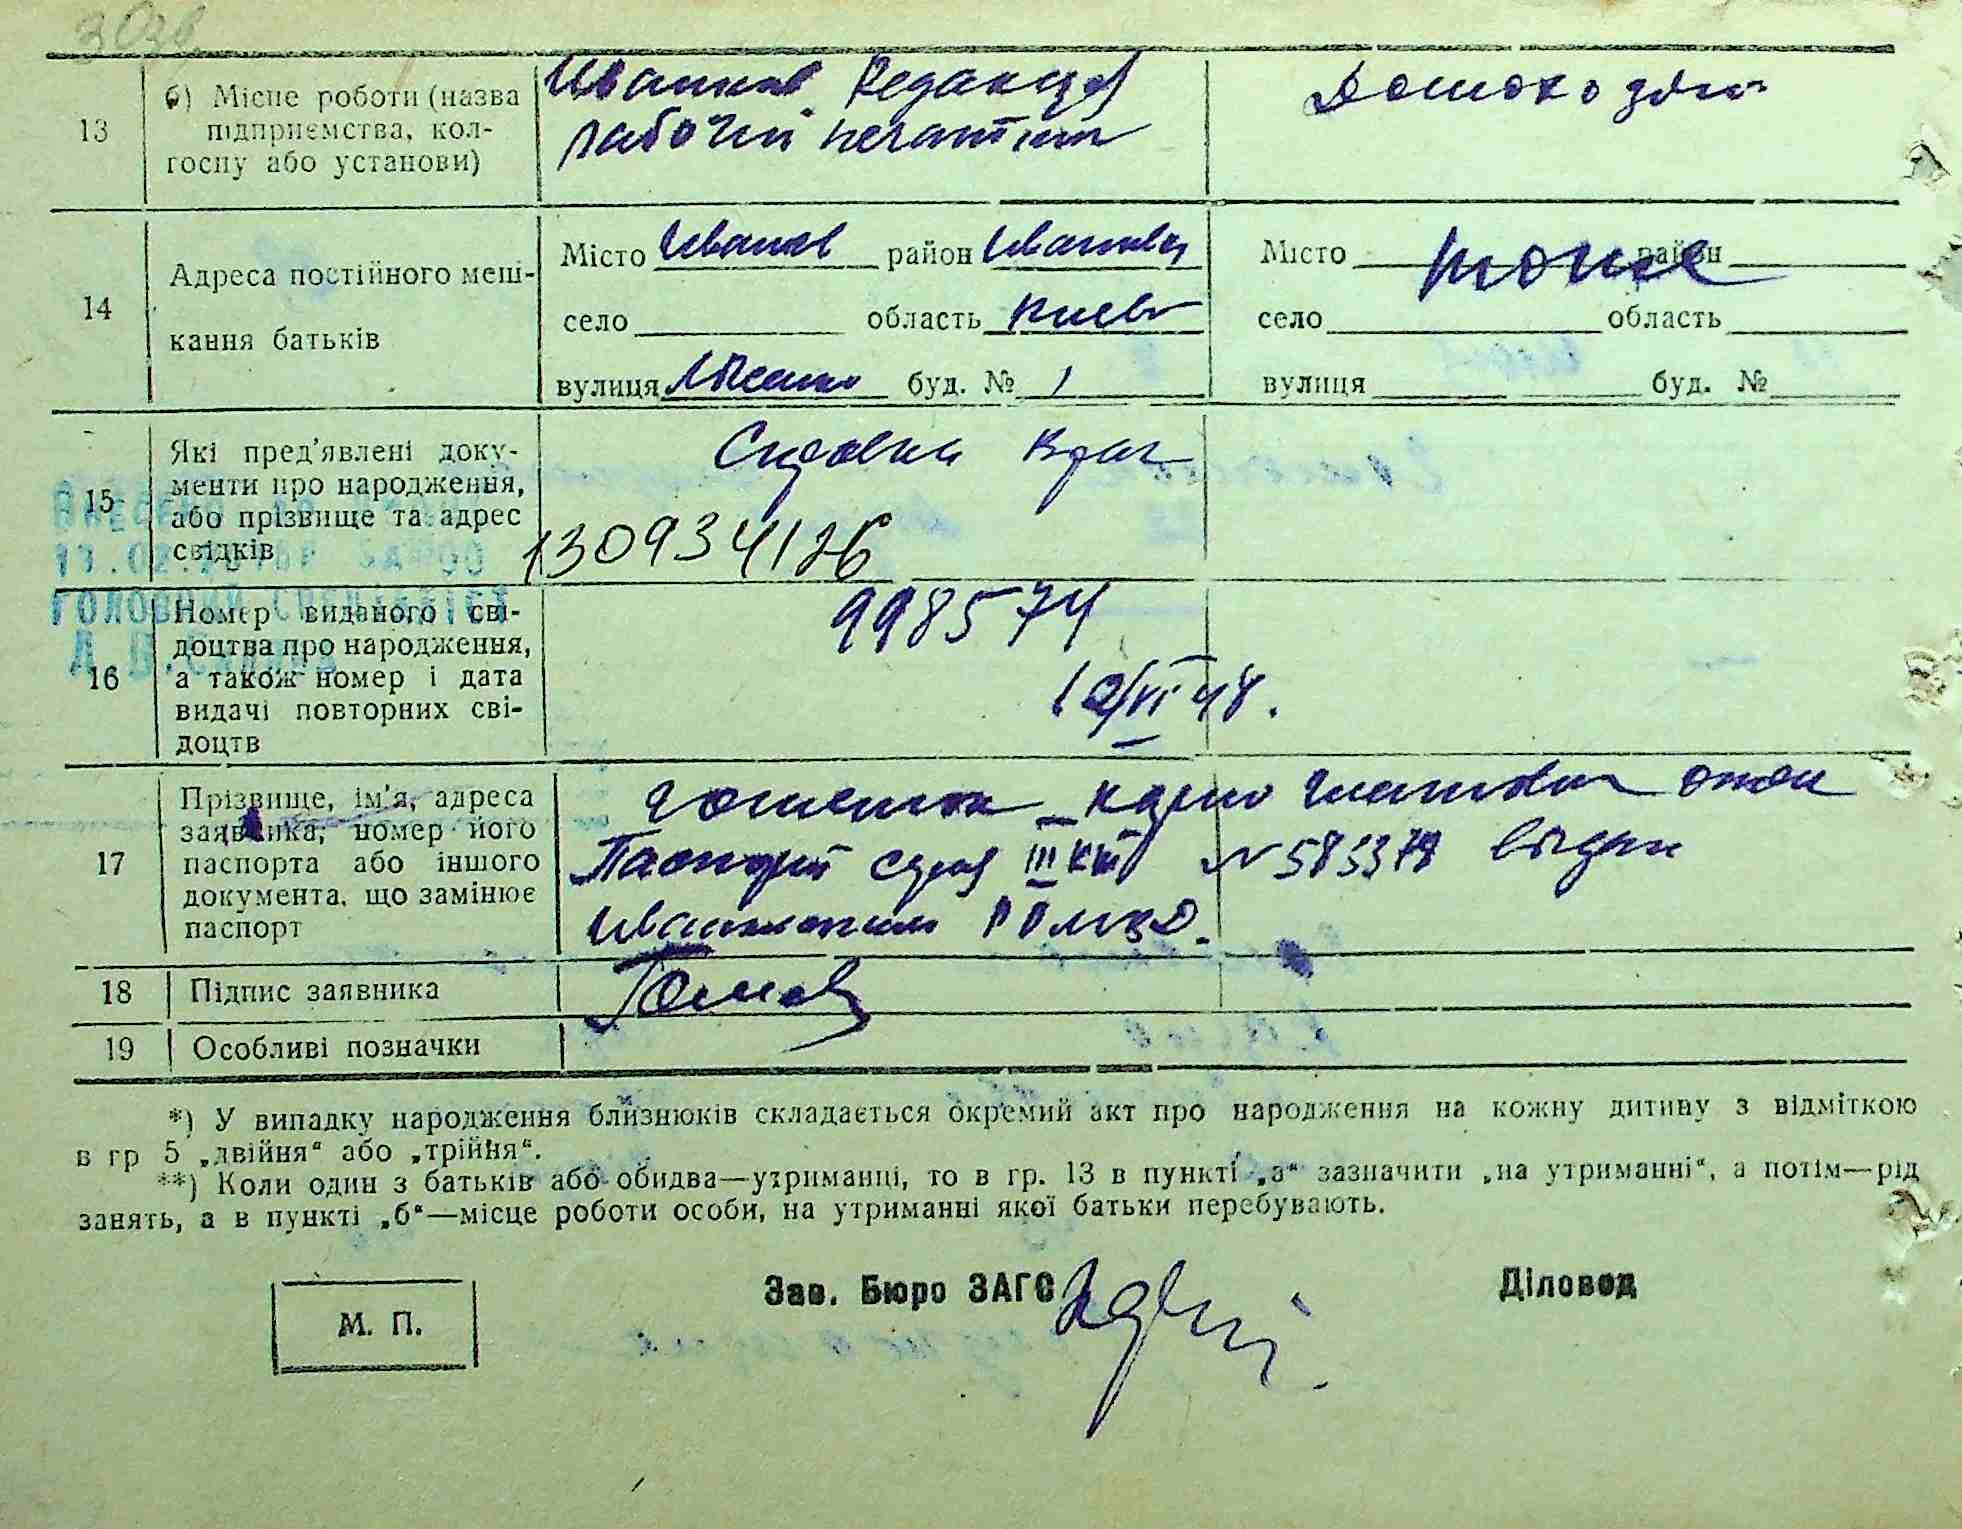 13
б) Місце роботи (назва
підприємства, кол-
госпу або установи)
Иванков Редакция
рабочий
Домохозяй
14
Адреса постійного меш-
кання батьків
Місто Иванков район Иванковск
село область Киев
вулиця буд. № 1
Місто тоже район
село область
вулиця буд. №
15
Які пред'явлені доку-
менти про народження,
або прізвище та адрес
свідків
Справка Врач
130934126
16
Номер виданого сві-
доцтва про народження,
а також номер і дата
видачі повторних сві-
доцтв
998574
12/VI 48.
17
Прізвище, ім'я, адреса
заявника, номер його
паспорта або іншого
документа, що замінює
паспорт
Паспорт серия III № 583379
Иванковским РОМВД.
18
Підпис заявника
19
Особливі позначки
*) У випадку народження близнюків складається окремий акт про народження на кожну дитину з відміткою
в гр 5 „двійня“ або „трійня“.
**) Коли один з батьків або обидва—утриманці, то в гр. 13 в пункті „а“ зазначити „на утриманні“, а потім—рід
занять, а в пункті „б“—місце роботи особи, на утриманні якої батьки перебувають.
Зав. Бюро ЗАГС
Діловод
М. П.